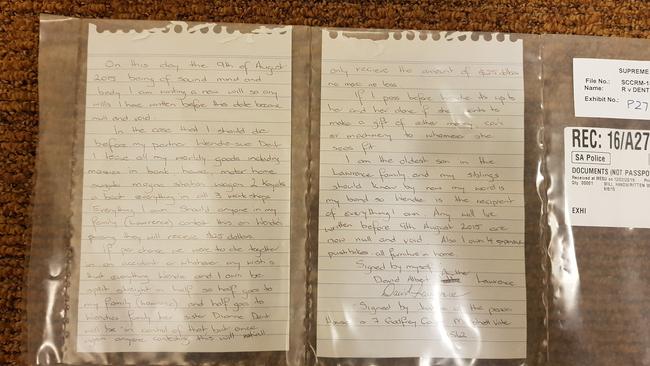 On this day the 9th of August
2015 being of sound mind and
body I am writing a new will so any
wills I have written before this date become
null and void.
In the case that I should die
before my partner Wendie-sue Dent
I leave all my worldly goods including
monies in bank house, motor home
suzuki magna station wagon 2 Kayaks
a boat everything in all 3 work shops
Everything I own. Should anyone in my
family (Lawrence) contest this on Wendies
passing they will receive $25 dollars
If of course we were to die together
in an accident or whatever my wish is
that everything Wendie and I own be
split straight in half so half goes to
my family (Lawrence) and half goes to
Wendies family her sister Dianne Dent
will be in control of that but once
upon anyone contesting this will
only recieve the amount of $25 dollars
no more no less
If I pass before Wendie its up to
her and her alone if she wants to
make a gift of either money cars
or machinery to whomever she
sees fit
I am the oldest son in the
Lawrence family and my siblings
should know by now my word is
my bond so Wendie is the recipient
of everything I own Any will be
written before 9th August 2015 are
now null and void. Also I own 4 expensive
pushbikes all furniture in home.
Signed by myself
David Albert Lawrence
Signed by the person
House 7 Godfrey
SUPREME
File No: SCCRM-1
Name: R v DENT
Exhibit No: P27
REC: 16/A27
SA Police
DOCUMENTS (NOT PASSPO
Qty: 00001 WILL, HANDWRITTEN W
EXHI